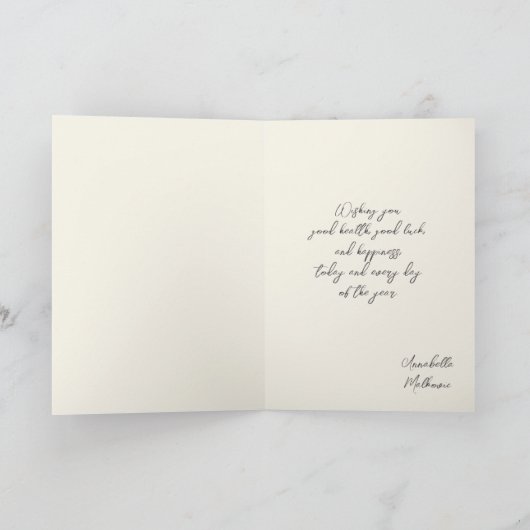 Wishing you
good health, good luck,
and happiness,
today and every day
of the year
Annabella
Malkovic